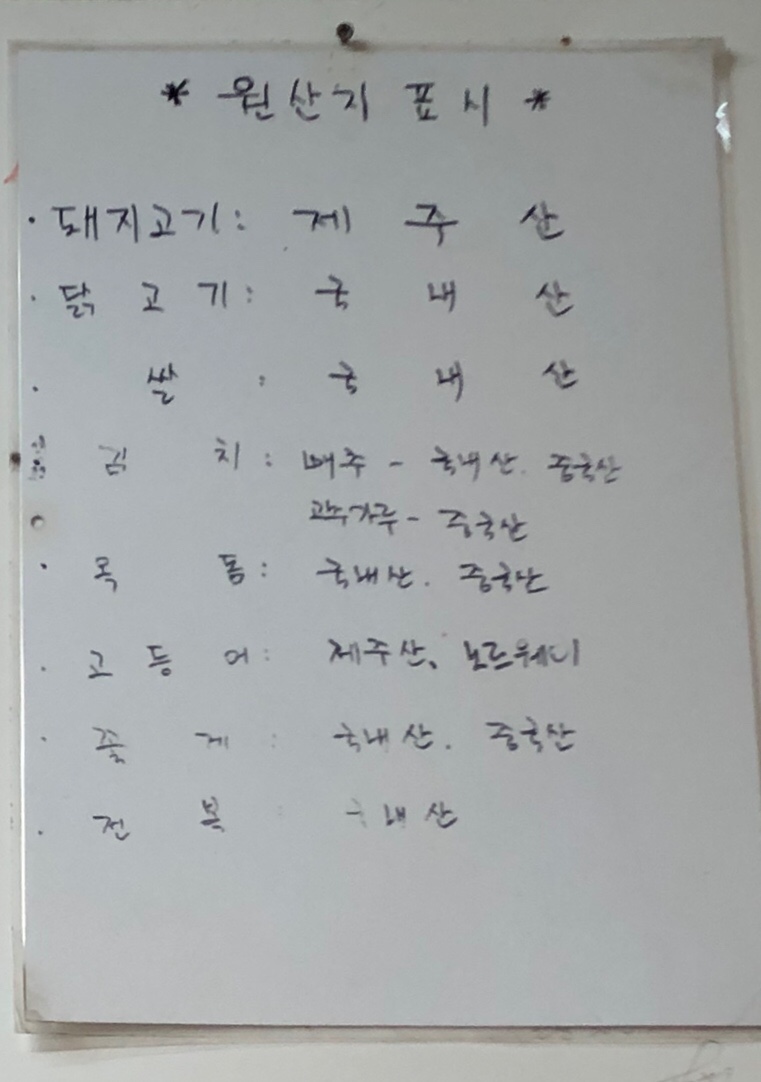 * 원산지 표시 *
· 돼지고기: 제 주 산
· 닭 고 기: 국 내 산
· 쌀 : 국 내 산
김 치 : 배추 - 국내산. 중국산
고추가루 - 중국산
· 목 통 : 국내산. 중국산
· 고 등 어 : 제주산, 노르웨이
· 꽃 게 : 국내산. 중국산
· 전 복 : 국내산